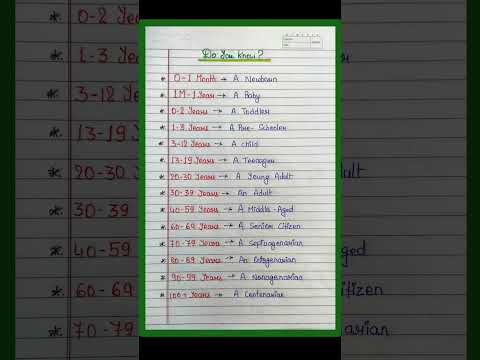 Do You Know?
* 0-1 Month → A Newborn
* 1M-1 Year → A Baby
* 0-2 Years → A Toddler
* 1-3 Years → A Pre-Schooler
* 3-12 Years → A child
* 13-19 Years → A Teenager
* 20-30 Years → A Young Adult
* 30-39 Years → An Adult
* 40-59 Years → A Middle-Aged
* 60-69 Years → A Senior Citizen
* 70-79 Years → A Septuagenarian
* 80-89 Years → An Octogenarian
* 90-99 Years → A Nonagenarian
* 100+ Years → A Centenarian
* 0-2
* 1-3
* 3-12
* 13-19
* 20-30
* 30-39
* 40-59
* 60-69
* 70-79
ged
itizen
arian